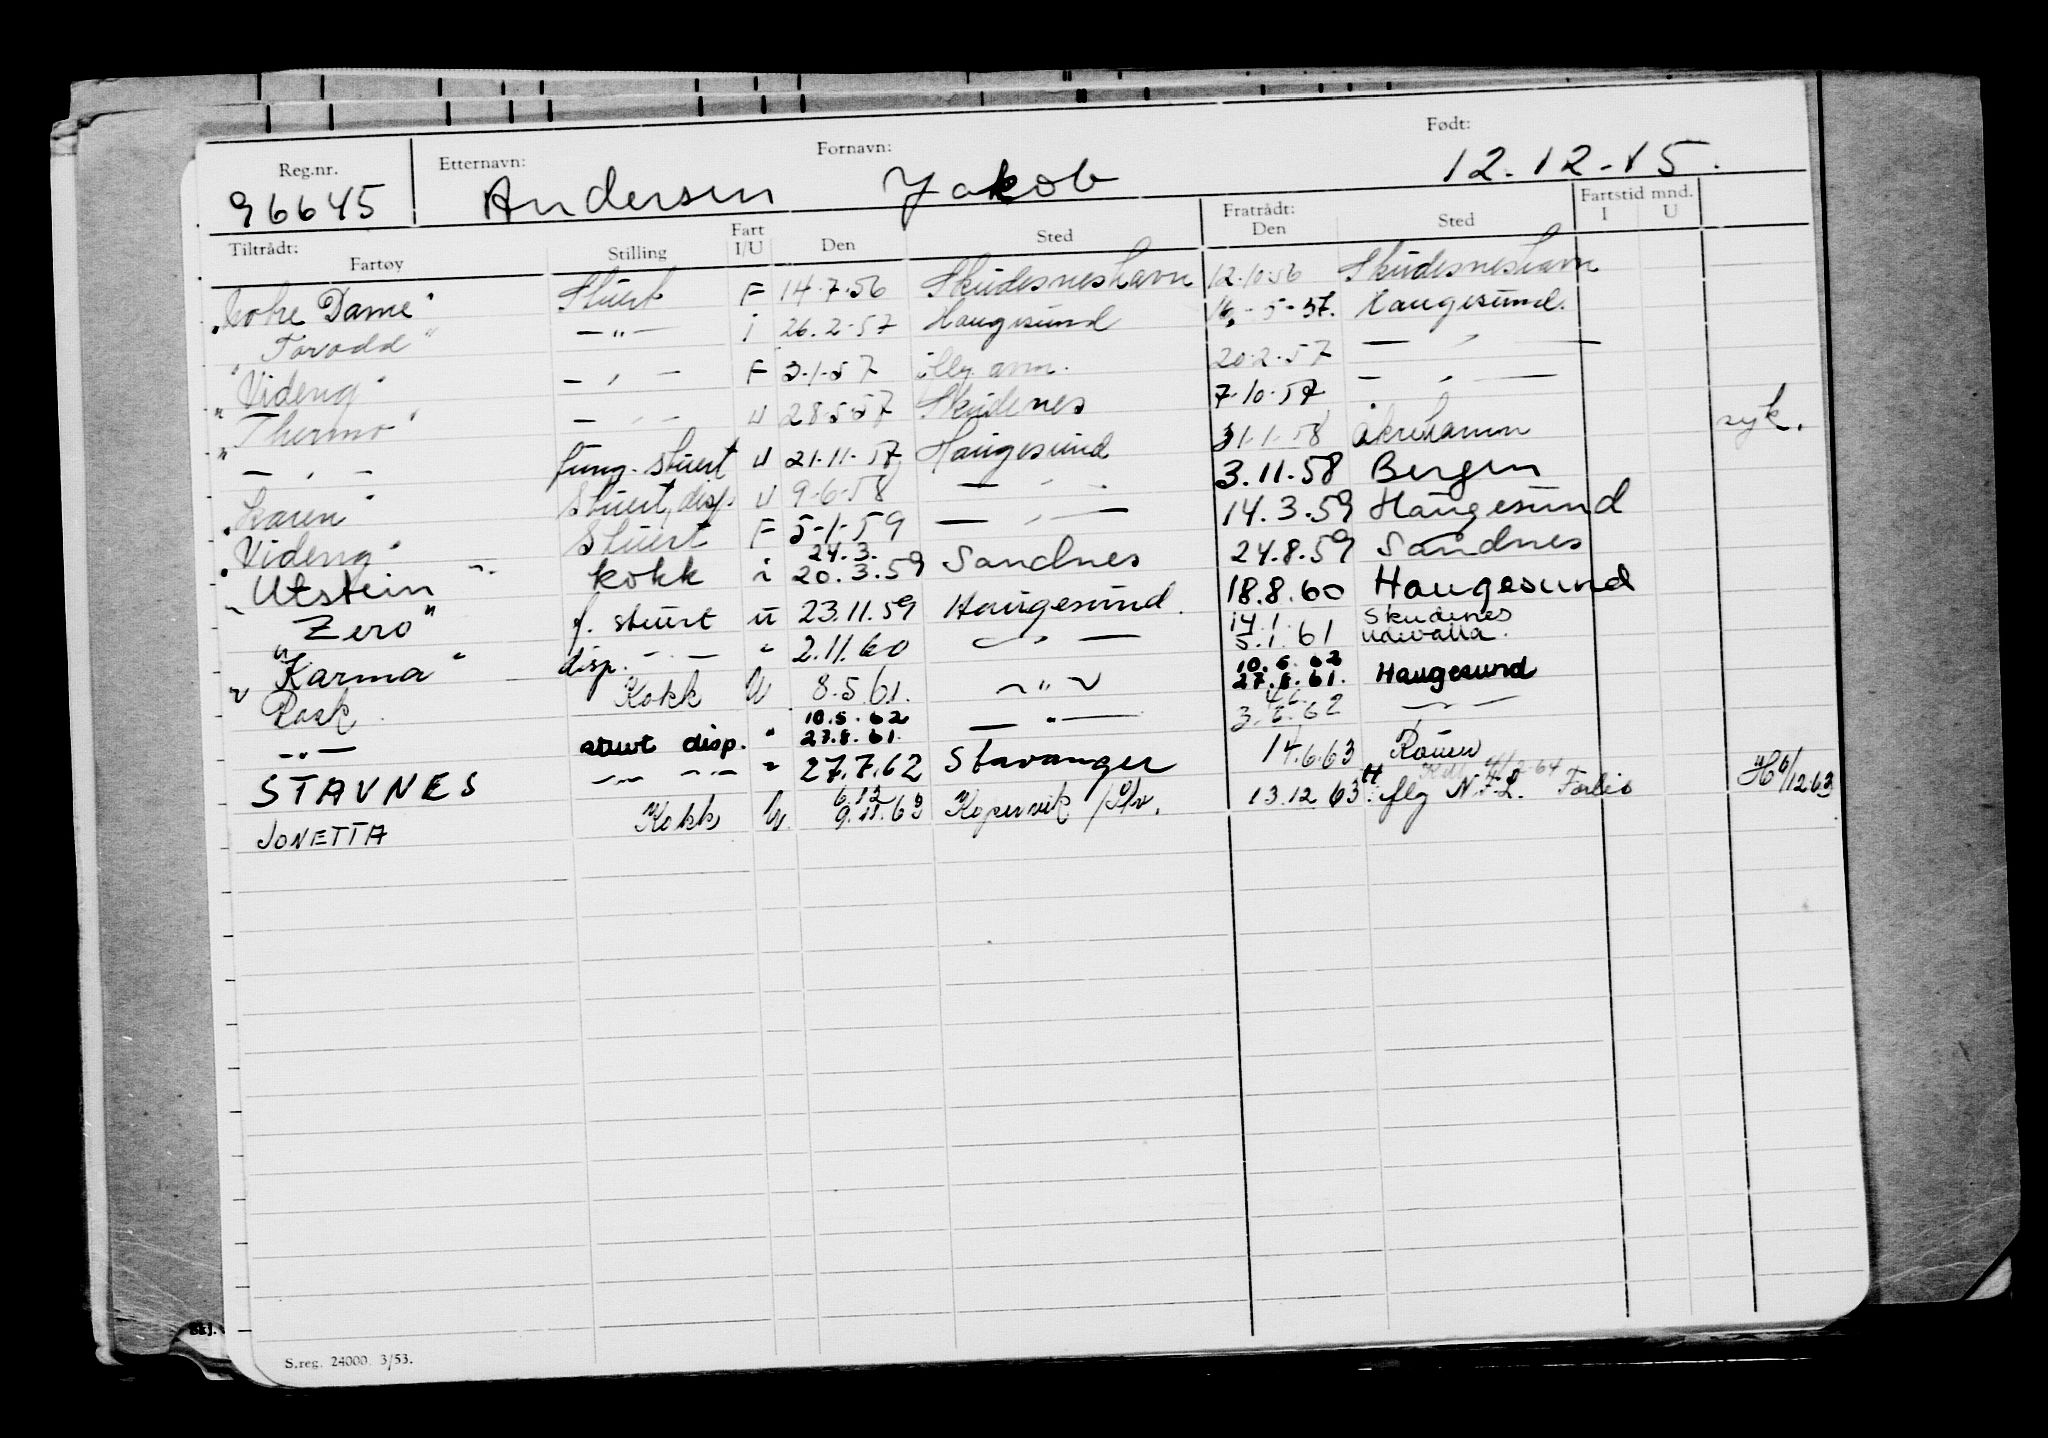 Reg.nr. Etternavn: Fornavn: Født:
96645 Andersen Jakob 12.12.15.
Tiltrådt: Fratrådt: Fartstid mnd.
Fartøy Stilling Fart I/U Den Sted Den Sted I U
Dame" Stuert F 14.7.56 Skudesneshavn 12.10.56 Skudesneshavn
"Torodd" — " — i 26.2.57 Haugesund 16.-5-57. Haugesund.
"Videng" — " — F 3.1.57 20.2.57 — " —
"Thermo" — " — u 28.5.57 Skudenes 7.10.57 — " —
— " — fung. stuert u 21.11.57 Haugesund 31.1.58 Åkrehamn syk.
"Karen" Stuert, disp. u 9.6.58 — " — 3.11.58 Bergen
"Videng" Stuert F 5-1-59 — " — 14.3.59 Haugesund
"Utstein" kokk i 24.3. 20.3.59 Sandnes 24.8.59 Sandnes
"Zero" f. stuert u 23.11.59 Haugesund. 18.8.60 Haugesund
"Karma" disp. — " — " 2.11.60 — " — 14.1. 5.1.61 Skudenes Udevalla.
Rask Kokk U 8.5.61. — " — 10.5.62 27.8.61. Haugesund
— " — stuert disp. " 10.5.62 27.8.61. — " — 3.6.62 — " —
STAVNES — " — — " — " 27.7.62 Stavanger 14.6.63 Rouen
JONETTA Kokk U. 6.12 9.11.63 Kopervik 13.12.63 flg N.F.L. 6/12.63
S.reg. 24000. 3/53.